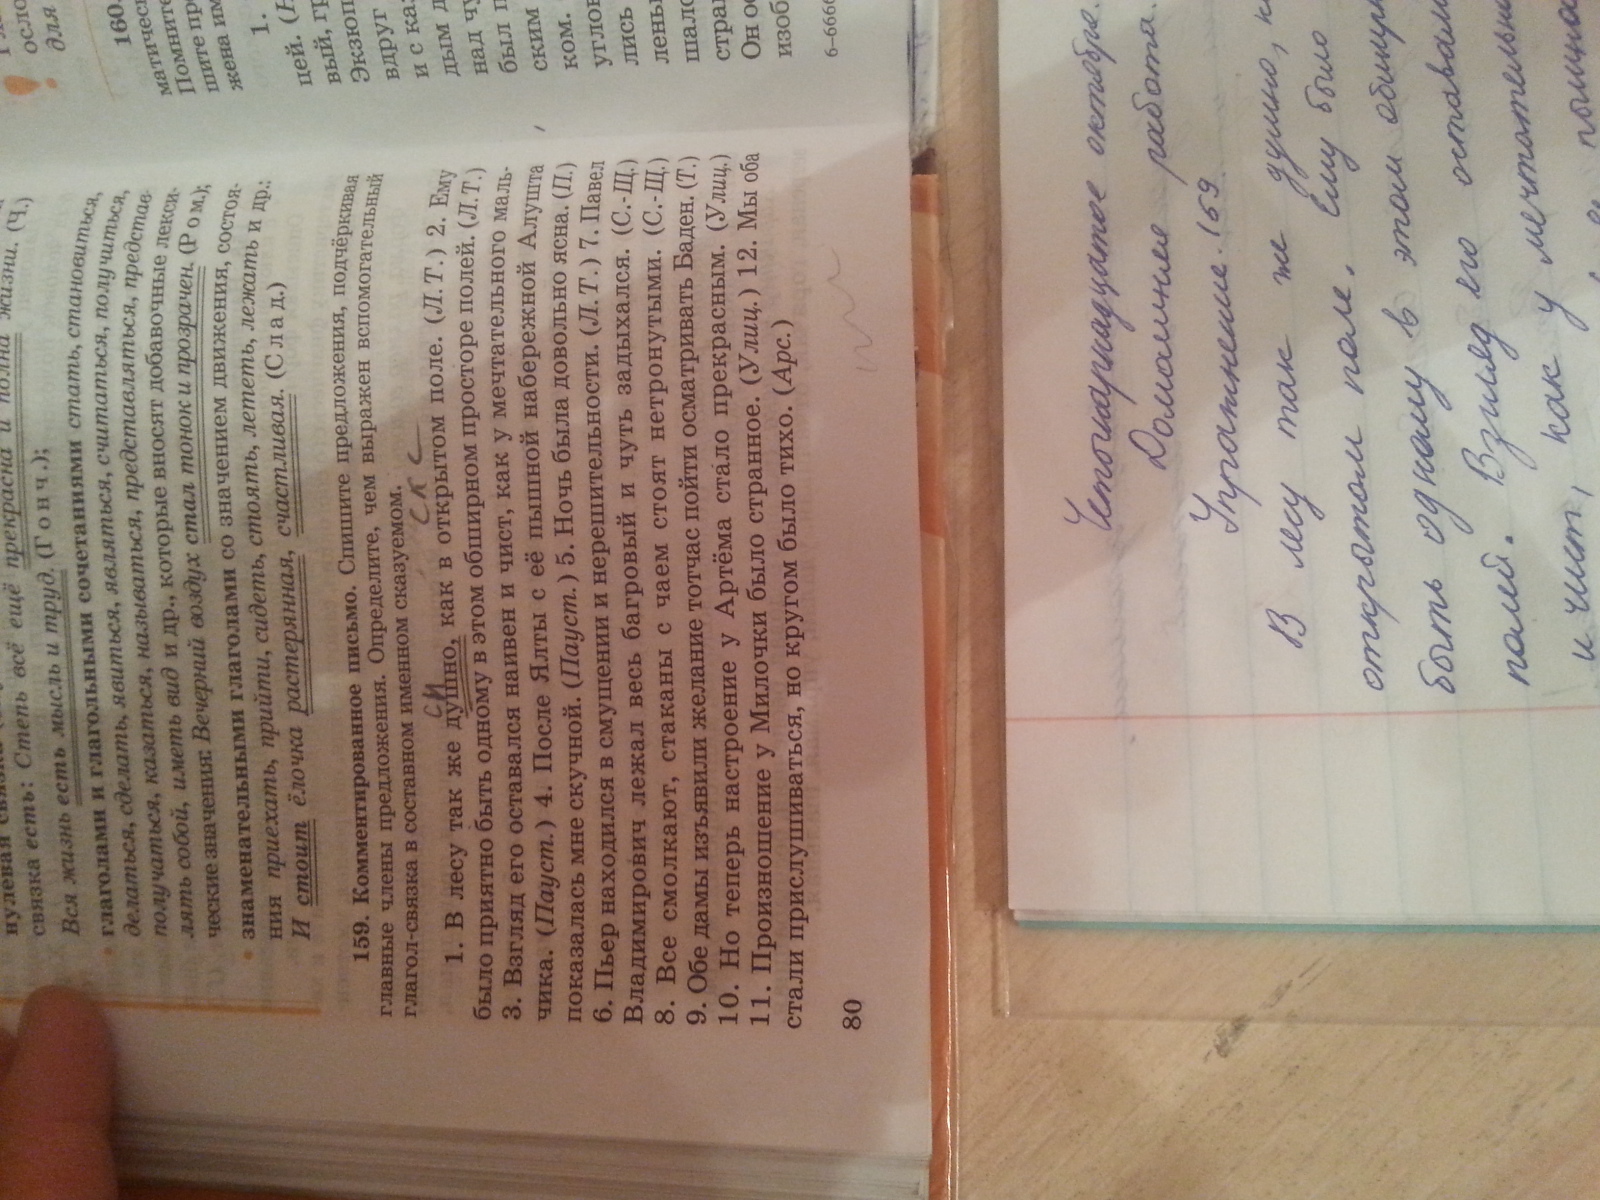 жизни. (Ч.)
связка есть: Степь всё ещё прекрасна и полна
Вся жизнь есть мысль и труд. (Гонч.);
• глаголами и глагольными сочетаниями стать, становиться,
делаться, сделать, явиться, являться, считаться, получиться,
получаться, казаться, называться, представляться, представ-
лять собой, иметь вид и др., которые вносят добавочные лекси-
ческие значения: Вечерний воздух стал тонок и прозрачен. (Ром.);
• знаменательными глаголами со значением движения, состоя-
ния приехать, прийти, сидеть, стоять, лететь, лежать и др.:
И стоит ёлочка растерянная, счастливая. (Слад.)
159. Комментированное письмо. Спишите предложения, подчёркивая
главные члены предложения. Определите, чем выражен вспомогательный
глагол-связка в составном именном сказуемом.
1. В лесу так же душно, как в открытом поле. (Л.Т.) 2. Ему
было приятно быть одному в этом обширном просторе полей. (Л.Т.)
3. Взгляд его оставался наивен и чист, как у мечтательного маль-
чика. (Пауст.) 4. После Ялты с её пышной набережной Алушта
показалась мне скучной. (Пауст.) 5. Ночь была довольно ясна. (П.)
6. Пьер находился в смущении и нерешительности. (Л.Т.) 7. Павел
Владимирович лежал весь багровый и чуть задыхался. (С.-Щ.)
8. Все смолкают, стаканы с чаем стоят нетронутыми. (С.-Щ.)
9. Обе дамы изъявили желание тотчас пойти осматривать Баден. (Т.)
10. Но теперь настроение у Артёма стало прекрасным. (Улиц.)
11. Произношение у Милочки было странное. (Улиц.) 12. Мы оба
стали прислушиваться, но кругом было тихо. (Арс.)
80
160.
матичес
Помните
шите пр
жена им
1.
цей. (
вый, гр
Экзюп
вдруг
и с ка
дым д
над чу
был п
ским
ком.
углов
лись
лень
шало
стра
Он ос
изоб
6–6666
Четырнадцатое октября.
Домашняя работа.
Упражнение. 159
В лесу так же душно,
открытом поле. Ему было
быть одному в этом
полей. Взгляд его
и чист, как у мечтательн